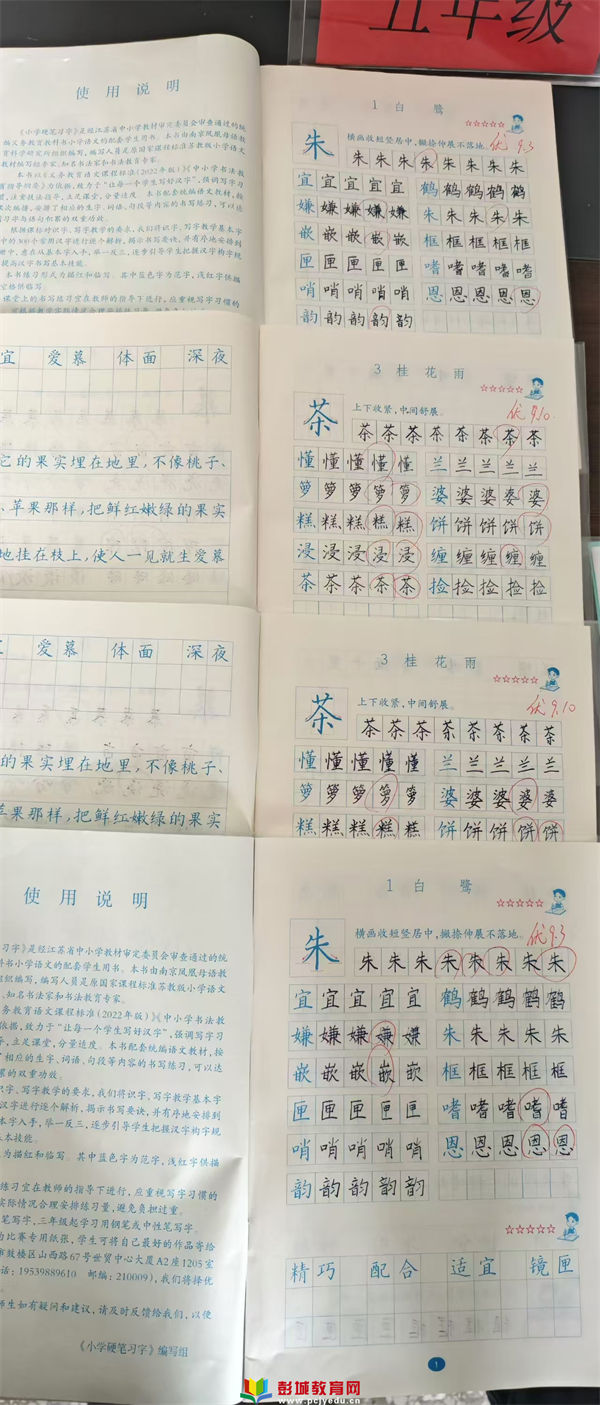 五年级
使用说明
《小学硬笔习字》是经江苏省中小学教材审定委员会审查通过的统
编义务教育教科书小学语文的配套学生用书。本书由南京凤凰母语教
育科学研究所组织编写,编写人员是原国家课程标准苏教版小学语文
教材编写组专家、知名书法家和书法教育专家。
本书以《义务教育语文课程标准(2022年版)》《中小学书法教
1 白 鹭
横画收短竖居中,撇捺伸展不落地。
优 9.3
朱
朱朱朱朱朱朱朱
宜宜宜宜宜 鹤鹤鹤鹤鹤
嫌嫌嫌嫌嫌 朱朱朱朱朱
嵌嵌嵌嵌嵌 框框框框框
匣匣匣匣匣 嗜嗜嗜嗜嗜
哨哨哨哨哨 恩恩恩恩恩
韵韵韵韵韵
宜 爱慕 体面 深夜
它的果实埋在地里,不像桃子、
苹果那样,把鲜红嫩绿的果实
地挂在枝上,使人一见就生爱慕
3 桂 花 雨
上下收紧,中间舒展。
优 9.10
茶
茶茶茶茶茶茶茶
懂懂懂懂懂 兰兰兰兰兰
箩箩箩箩箩 婆婆婆婆婆
糕糕糕糕糕 饼饼饼饼饼
浸浸浸浸浸 缠缠缠缠缠
茶茶茶茶茶 捡捡捡捡捡
爱慕 体面 深夜
的果实埋在地里,不像桃子、
苹果那样,把鲜红嫩绿的果实
3 桂 花 雨
上下收紧,中间舒展。
优 9.10
茶
茶茶茶茶茶茶茶茶
懂懂懂懂懂 兰兰兰兰兰
箩箩箩箩箩 婆婆婆婆婆
糕糕糕糕糕 饼饼饼饼饼
使用说明
习字》是经江苏省中小学教材审定委员会审查通过的统
科书小学语文的配套学生用书。本书由南京凤凰母语教
组织编写,编写人员是原国家课程标准苏教版小学语文
、知名书法家和书法教育专家。
务教育语文课程标准(2022年版)》《中小学书法教
依据,致力于“让每一个学生写好汉字”,强调写字习
导,立足课堂,分量适度。本书配套统编语文教材,按
了相应的生字、词语、句段等内容的书写练习,可以达
的双重功效。
识字、写字教学的要求,我们将识字、写字教学基本字
汉字进行逐个解析,揭示书写要诀,并有序地安排到
本字入手,举一反三,逐步引导学生把握汉字构字规
本技能。
为描红和临写。其中蓝色字为范字,浅红字供描
练习宜在教师的指导下进行,应重视写字习惯的
实际情况合理安排练习量,避免负担过重。
笔写字,三年级起学习用钢笔或中性笔写字。
为比赛专用纸张,学生可将自己最好的作品寄给
市鼓楼区山西路67号世贸中心大厦A2座1205室
话:19539889610 邮编:210009),我们将择优
师生如有疑问和建议,请及时反馈给我们,以便
《小学硬笔习字》编写组
1 白 鹭
横画收短竖居中,撇捺伸展不落地。
优 9.3
朱
朱朱朱朱朱朱朱朱
宜宜宜宜宜 鹤鹤鹤鹤鹤
嫌嫌嫌嫌嫌 朱朱朱朱朱
嵌嵌嵌嵌嵌 框框框框框
匣匣匣匣匣 嗜嗜嗜嗜嗜
哨哨哨哨哨 恩恩恩恩恩
韵韵韵韵韵
精巧 配合 适宜 镜匣
1
彭城教育网
www.pcjyedu.cn